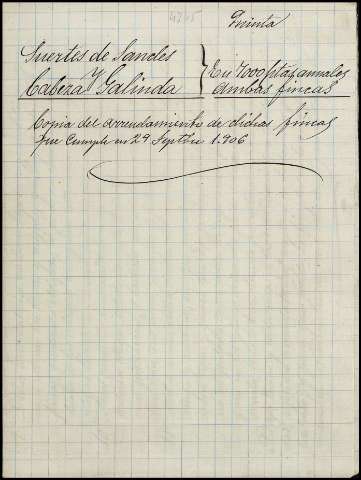 Quinta
Suertes de Sancles
y
Cabeza Galinda
En 7000 Ptas annales
ambas fincas
Copia del arrendamiento de dichas fincas
que cumple en 29 Septbre 1.906